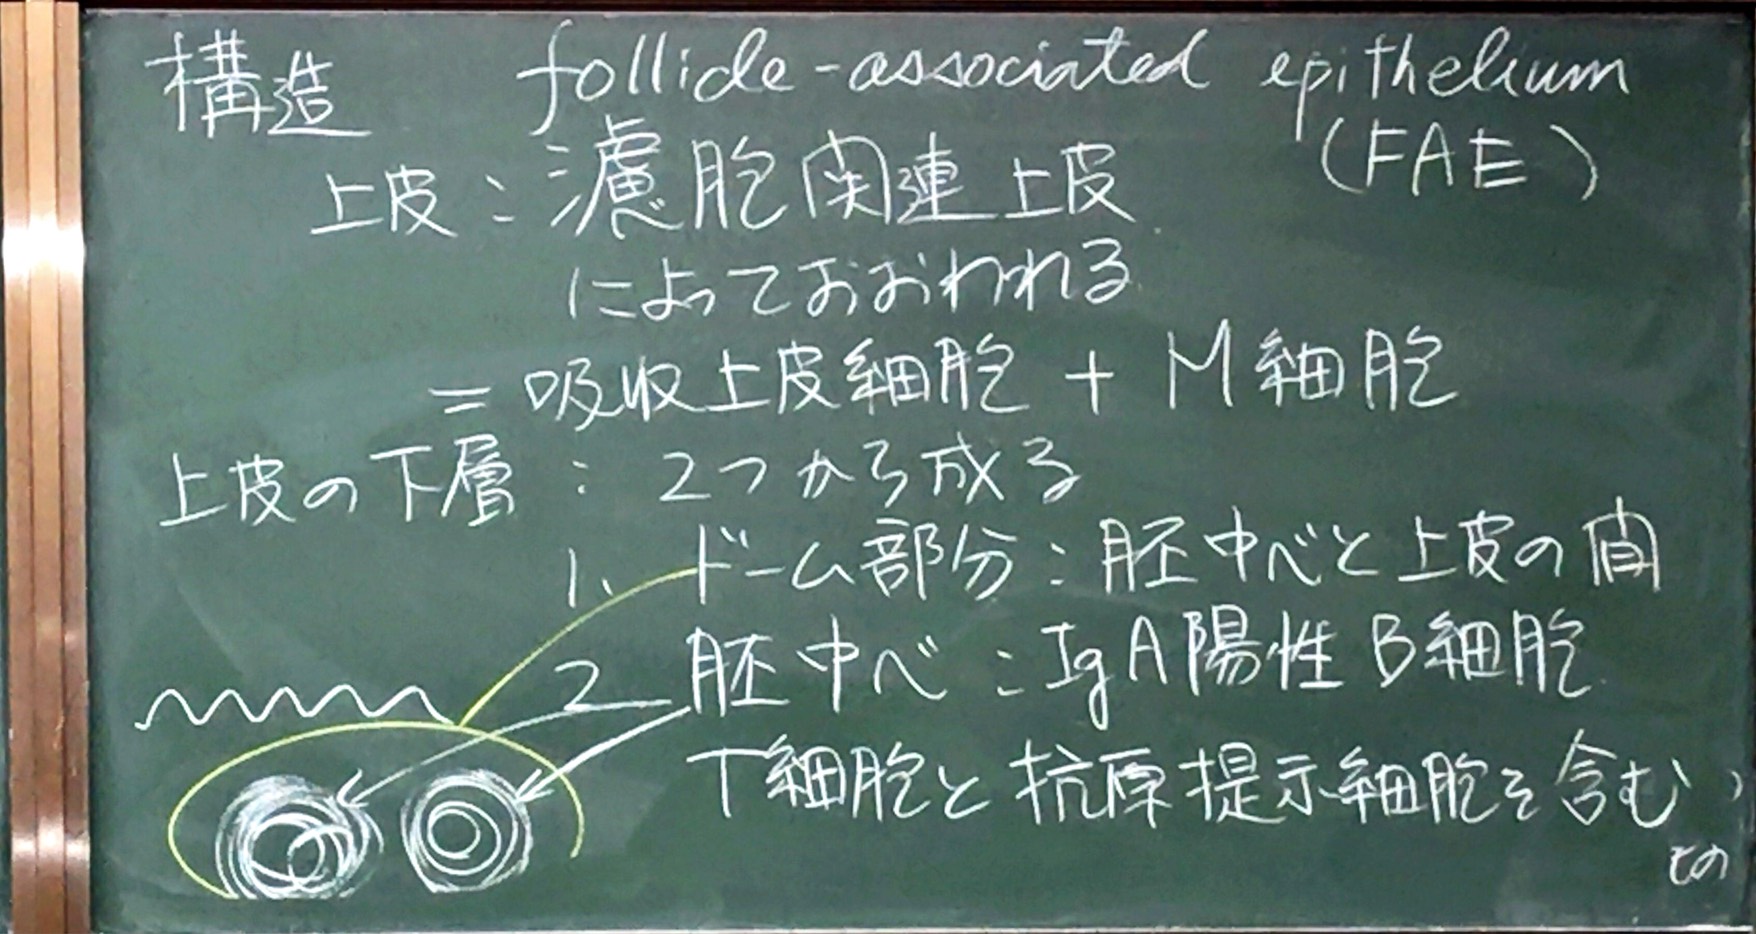 構造 follicle-associated epithelium
(FAE)
上皮：濾胞関連上皮
によっておおわれる
＝吸収上皮細胞 + M細胞
上皮の下層：2つから成る
1. ドーム部分：胚中心と上皮の間
2 胚中心：IgA陽性B細胞
T細胞と抗原提示細胞を含む